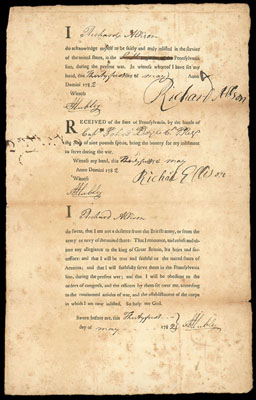 I Richard Allison
do acknowledge myself to be fairly and truly inlisted in the service
of the united States, in the Pennsylvania
line, during the present war. In witness whereof I have set my
hand, this Thirty first of may Anno
Domini 178
Witness
Richard Allison
AHubley
RECEIVED of the state of Pennsylvania, by the hands of
Cap
the sum of nine pounds specie, being the bounty for my inlistment
to serve during the war.
Witness my hand, this Thirty first of may
Anno Domini 178
Witness
Richard Ellison
AHubley
I Richard Allison
do swear, that I am not a deserter from the British army, or from the
army or navy of the united States: That I renounce, and refuse
any allegiance to the king of Great Britain, his heirs and successors:
and that I will be true and faithful to the united States of
America; and that I will faithfully serve them in the Pennsylvania
line, during the present war; and that I will be obedient to the
orders of congress, and the officers by them set over me, according
to the continental articles of war, and the establishment of the corps
in which I am now inlisted. So help me God.
Sworn before me, this Thirty first
day of may 178
AHubley